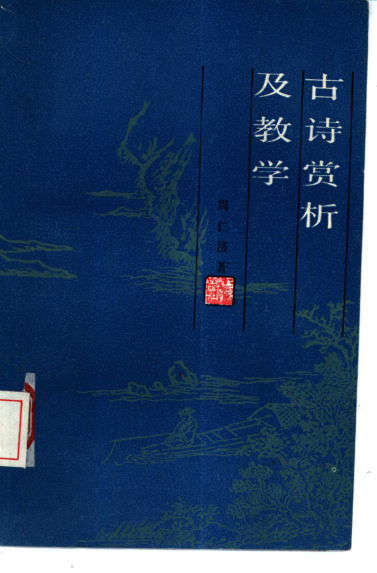 古诗赏析
及教学
周仁济著